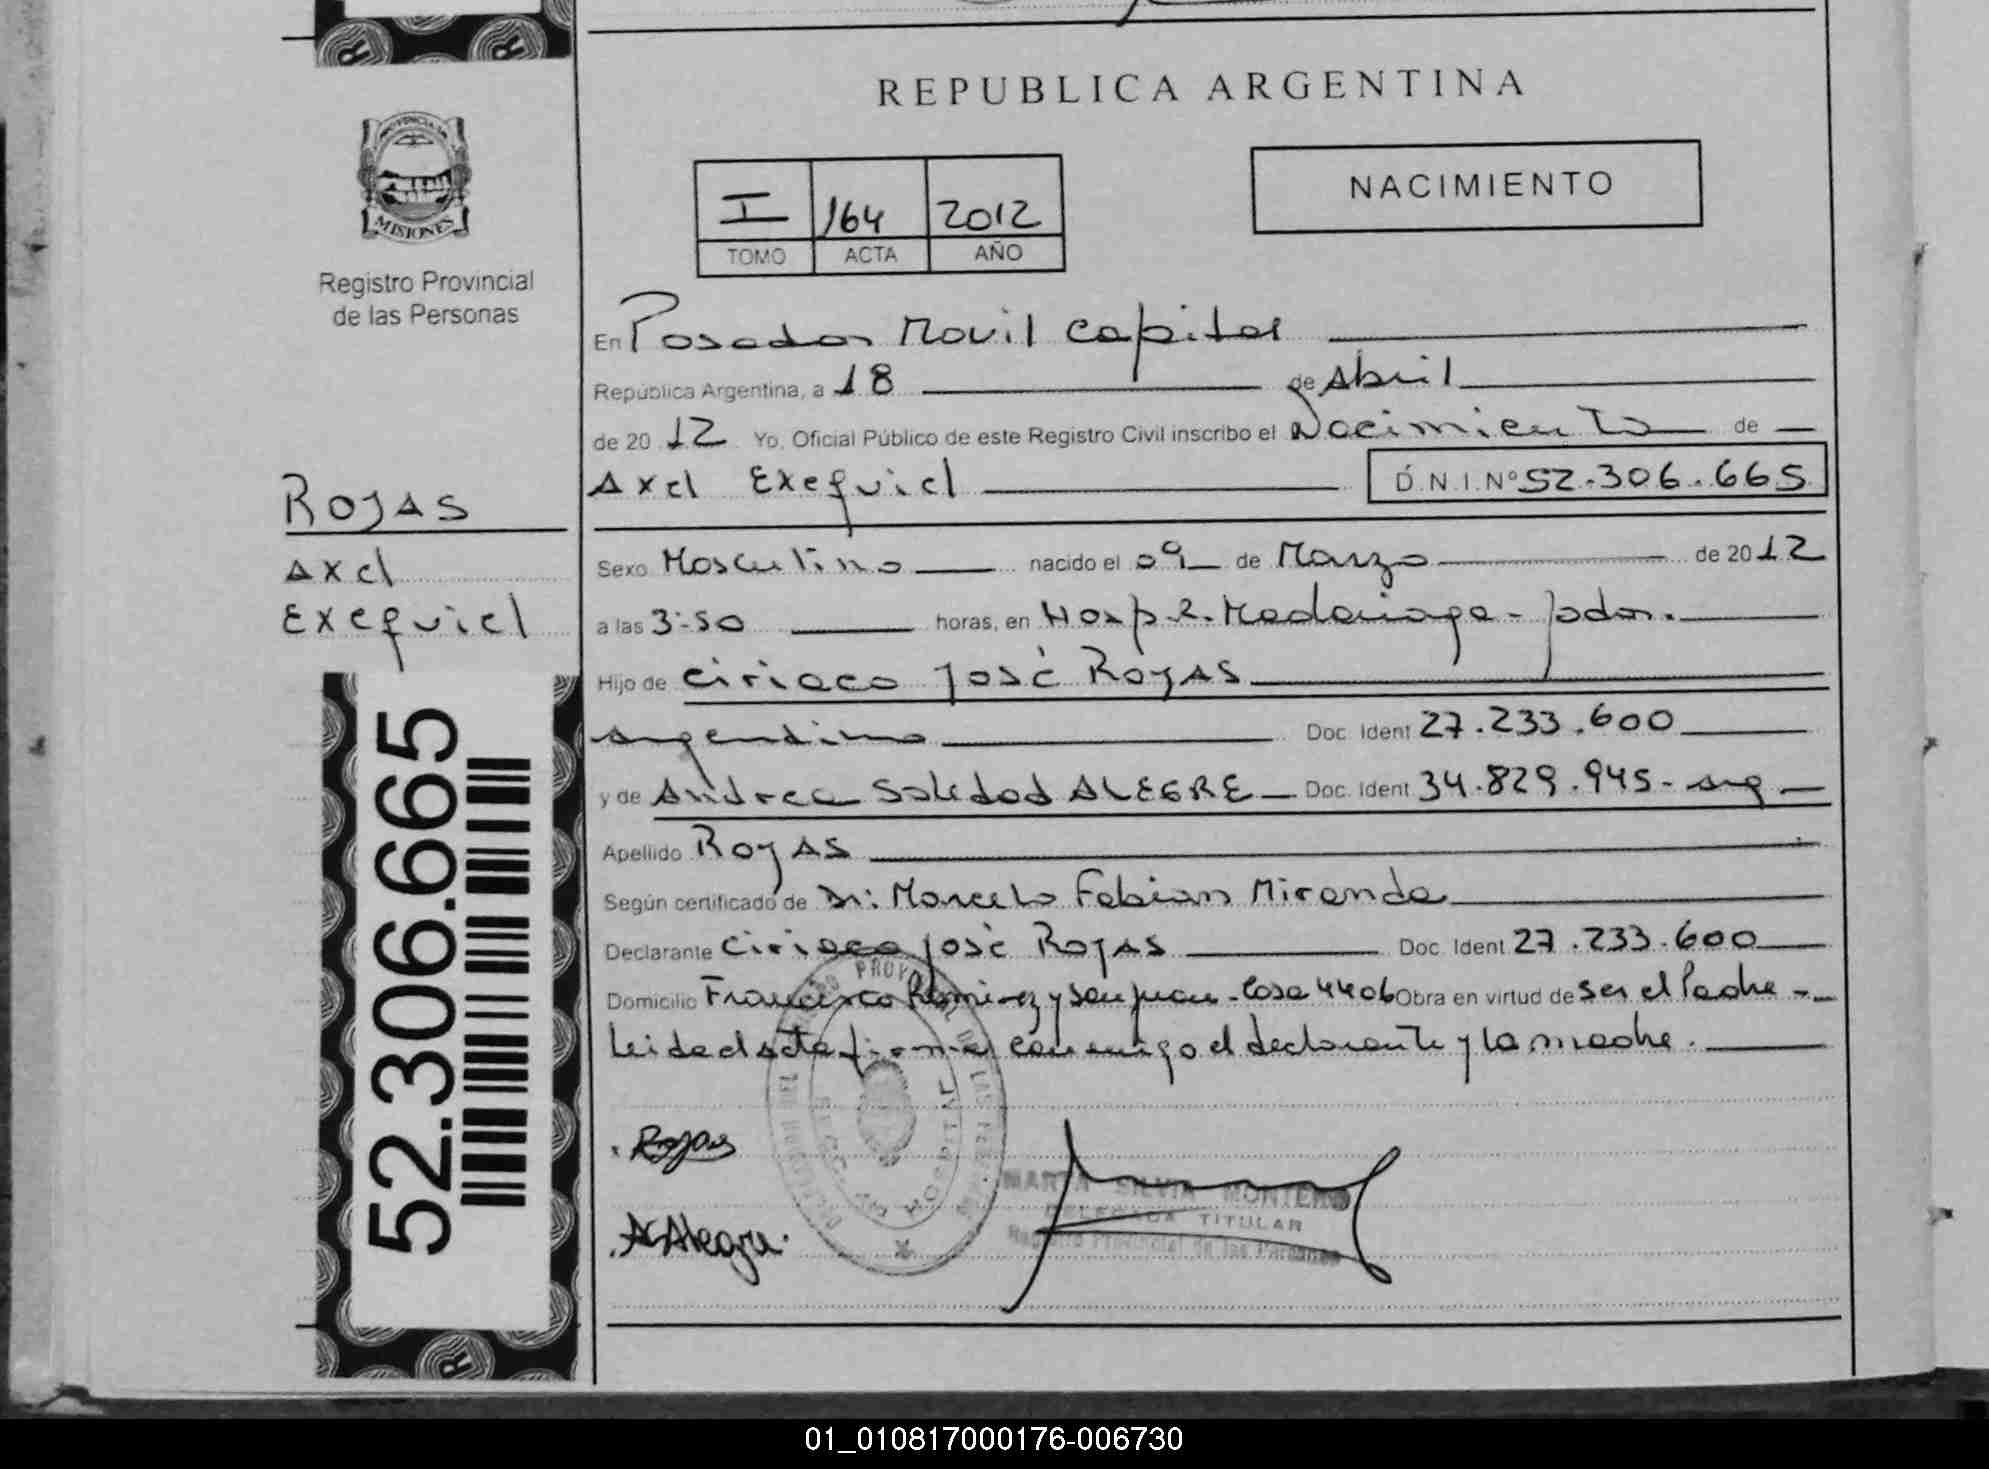 REPUBLICA ARGENTINA
PROVINCIA DE
MISIONES
Registro Provincial
de las Personas
NACIMIENTO
I 164 2012
TOMO ACTA AÑO
En Posadas Movil Capital
República Argentina, a 18 de Abril
de 2012 Yo, Oficial Público de este Registro Civil inscribo el Nacimiento de
Axel Exequiel D.N.I.Nº 52.306.665
ROJAS
Axel
Exequiel
Sexo Masculino nacido el 09 de Marzo de 2012
a las 3:50 horas, en Hosp. R. Madariaga - pdas.
Hijo de Ciriaco José ROJAS
argentino Doc. Ident 27.233.600
y de Andrea Soledad ALEGRE Doc. Ident 34.829.945 - arg
Apellido ROJAS
Según certificado de Dr: Marcelo Fabian Miranda
Declarante Ciriaco José ROJAS Doc. Ident 27.233.600
Domicilio Francisco Ramirez y San Juan - Casa 4406 Obra en virtud de ser el Padre -
Leida el Acta firman conmigo el declarante y la madre.
52.306.665
Rojas
A Alegre
MARTA SILVIA MONTERO
DELEGADA TITULAR
Registro Provincial de las Personas
01_010817000176-006730